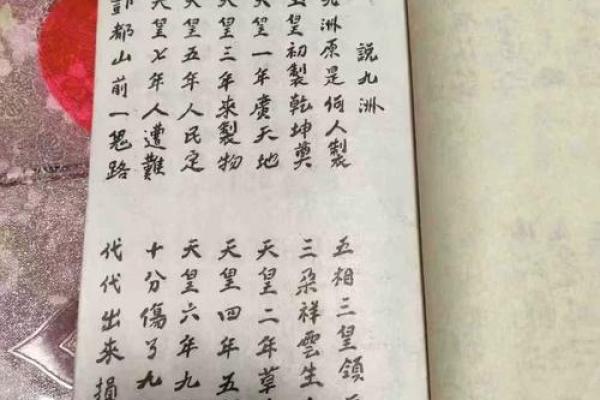 說九洲
九洲原是何人製 五相三皇領
皇初製乾坤奠 三朵祥雲生
天皇一年廣天地 天皇二年草
天皇三年來製物 天皇四年五
天皇五年人民定 天皇六年九
天皇七年人遭難 十分傷了九
都山前一路 代代出來損